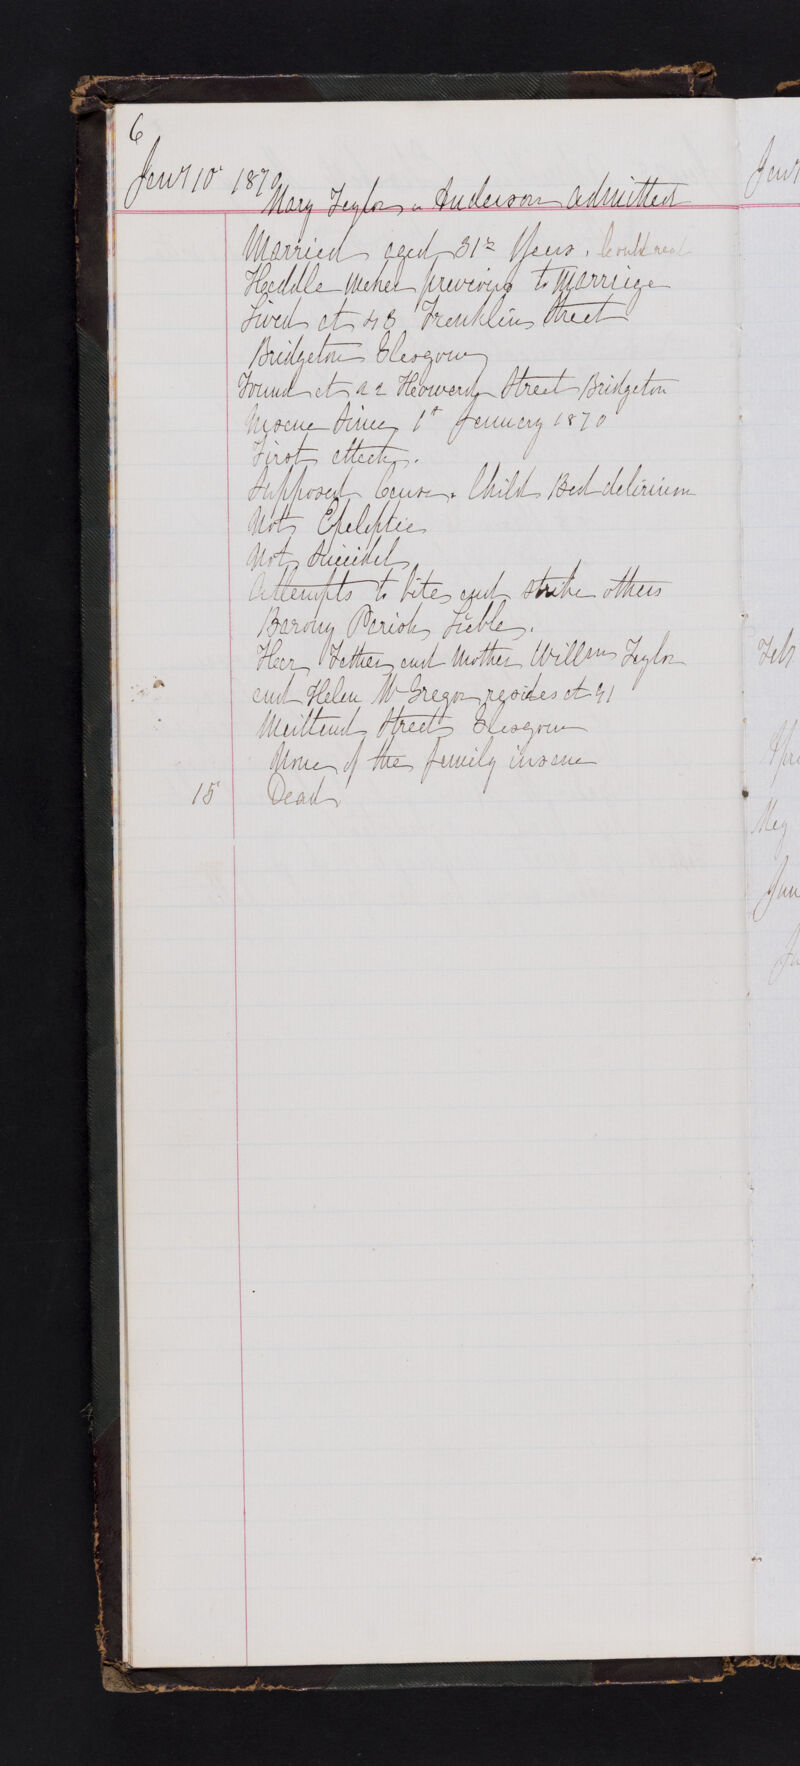 6
Jany 10 1870
Mary Taylor or Anderson admitted
Married aged 31½ years. Could read
Heddle Maker previous to Marriage
Lived at 48 Franklin Street
Bridgeton Glasgow
Found at 22 Howard Street Bridgeton
Insane Since 1st January 1870
First attack.
Supposed Cause. Child Bed delirium
Not Epileptic
Not Suicidal
Attempts to bite and strike others
Barony Parish Liable.
Heer Father and Mother William Taylor
and Helen McGregor resides at 91
Maitland Street Glasgow
None of the family insane
15 Dead
Jany
Feb
Apri
May
Jun
Ju